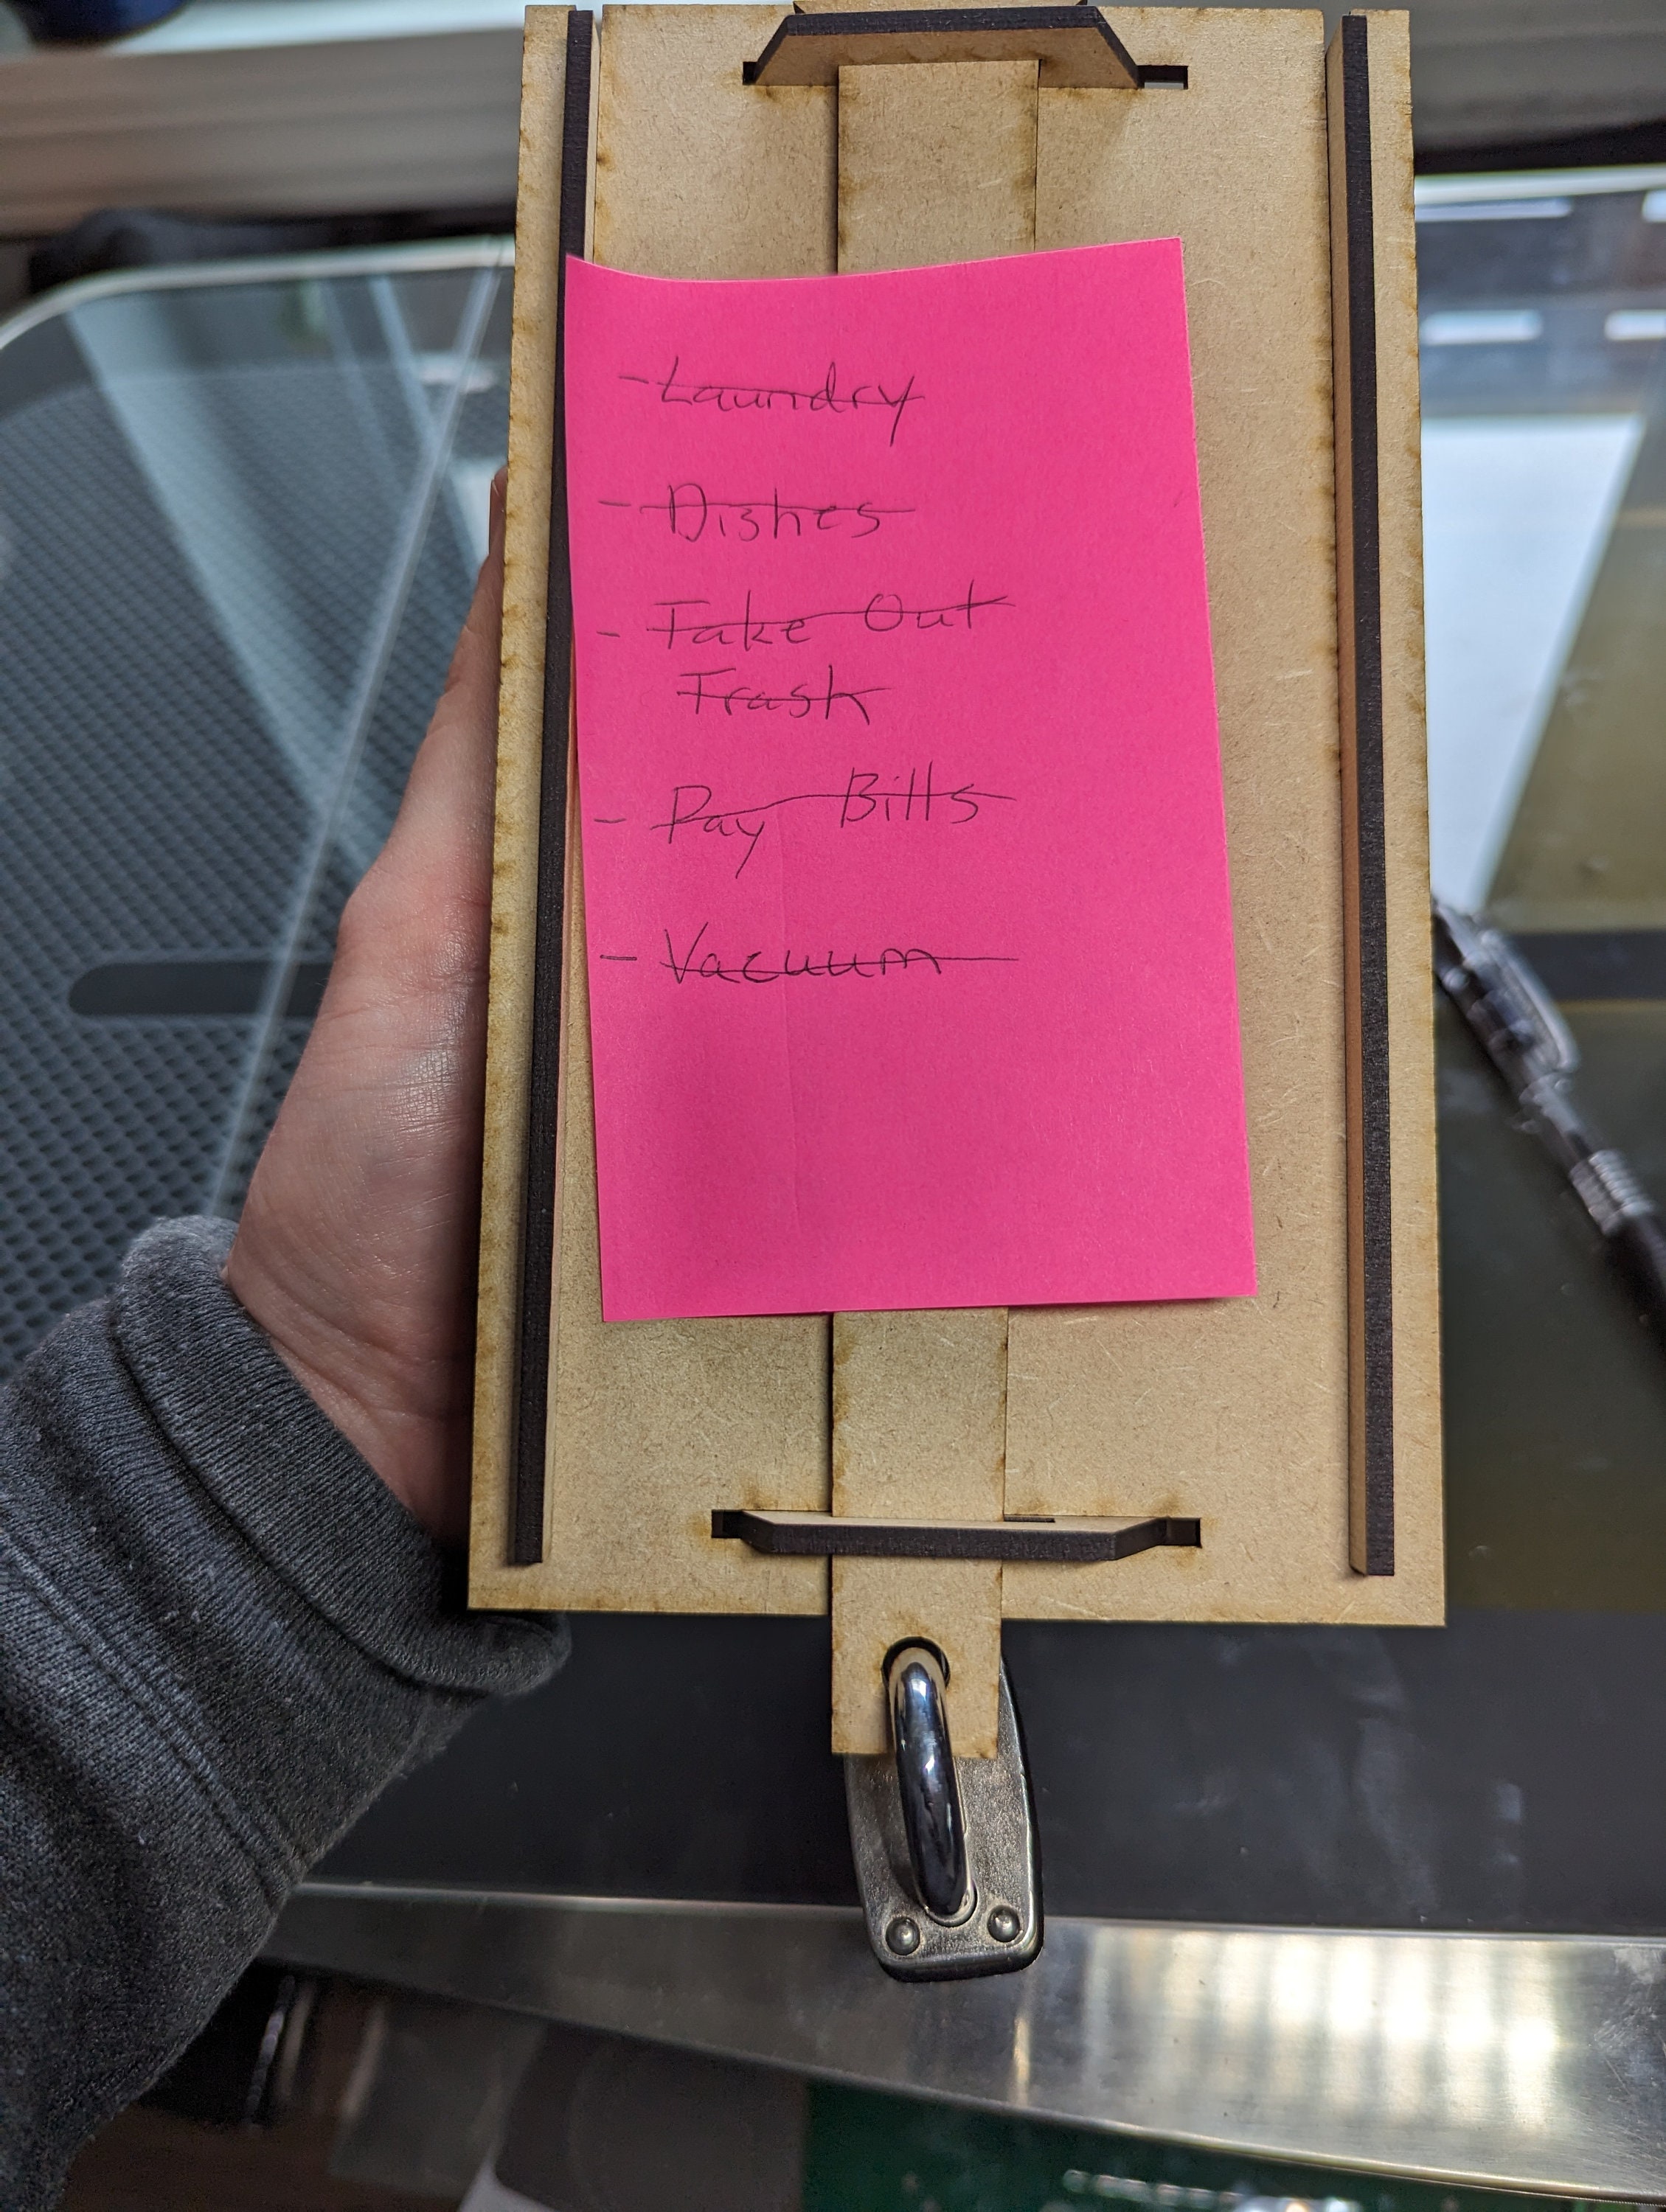 - Laundry
- Dishes
- Take Out
Trash
- Pay Bills
- Vacuum